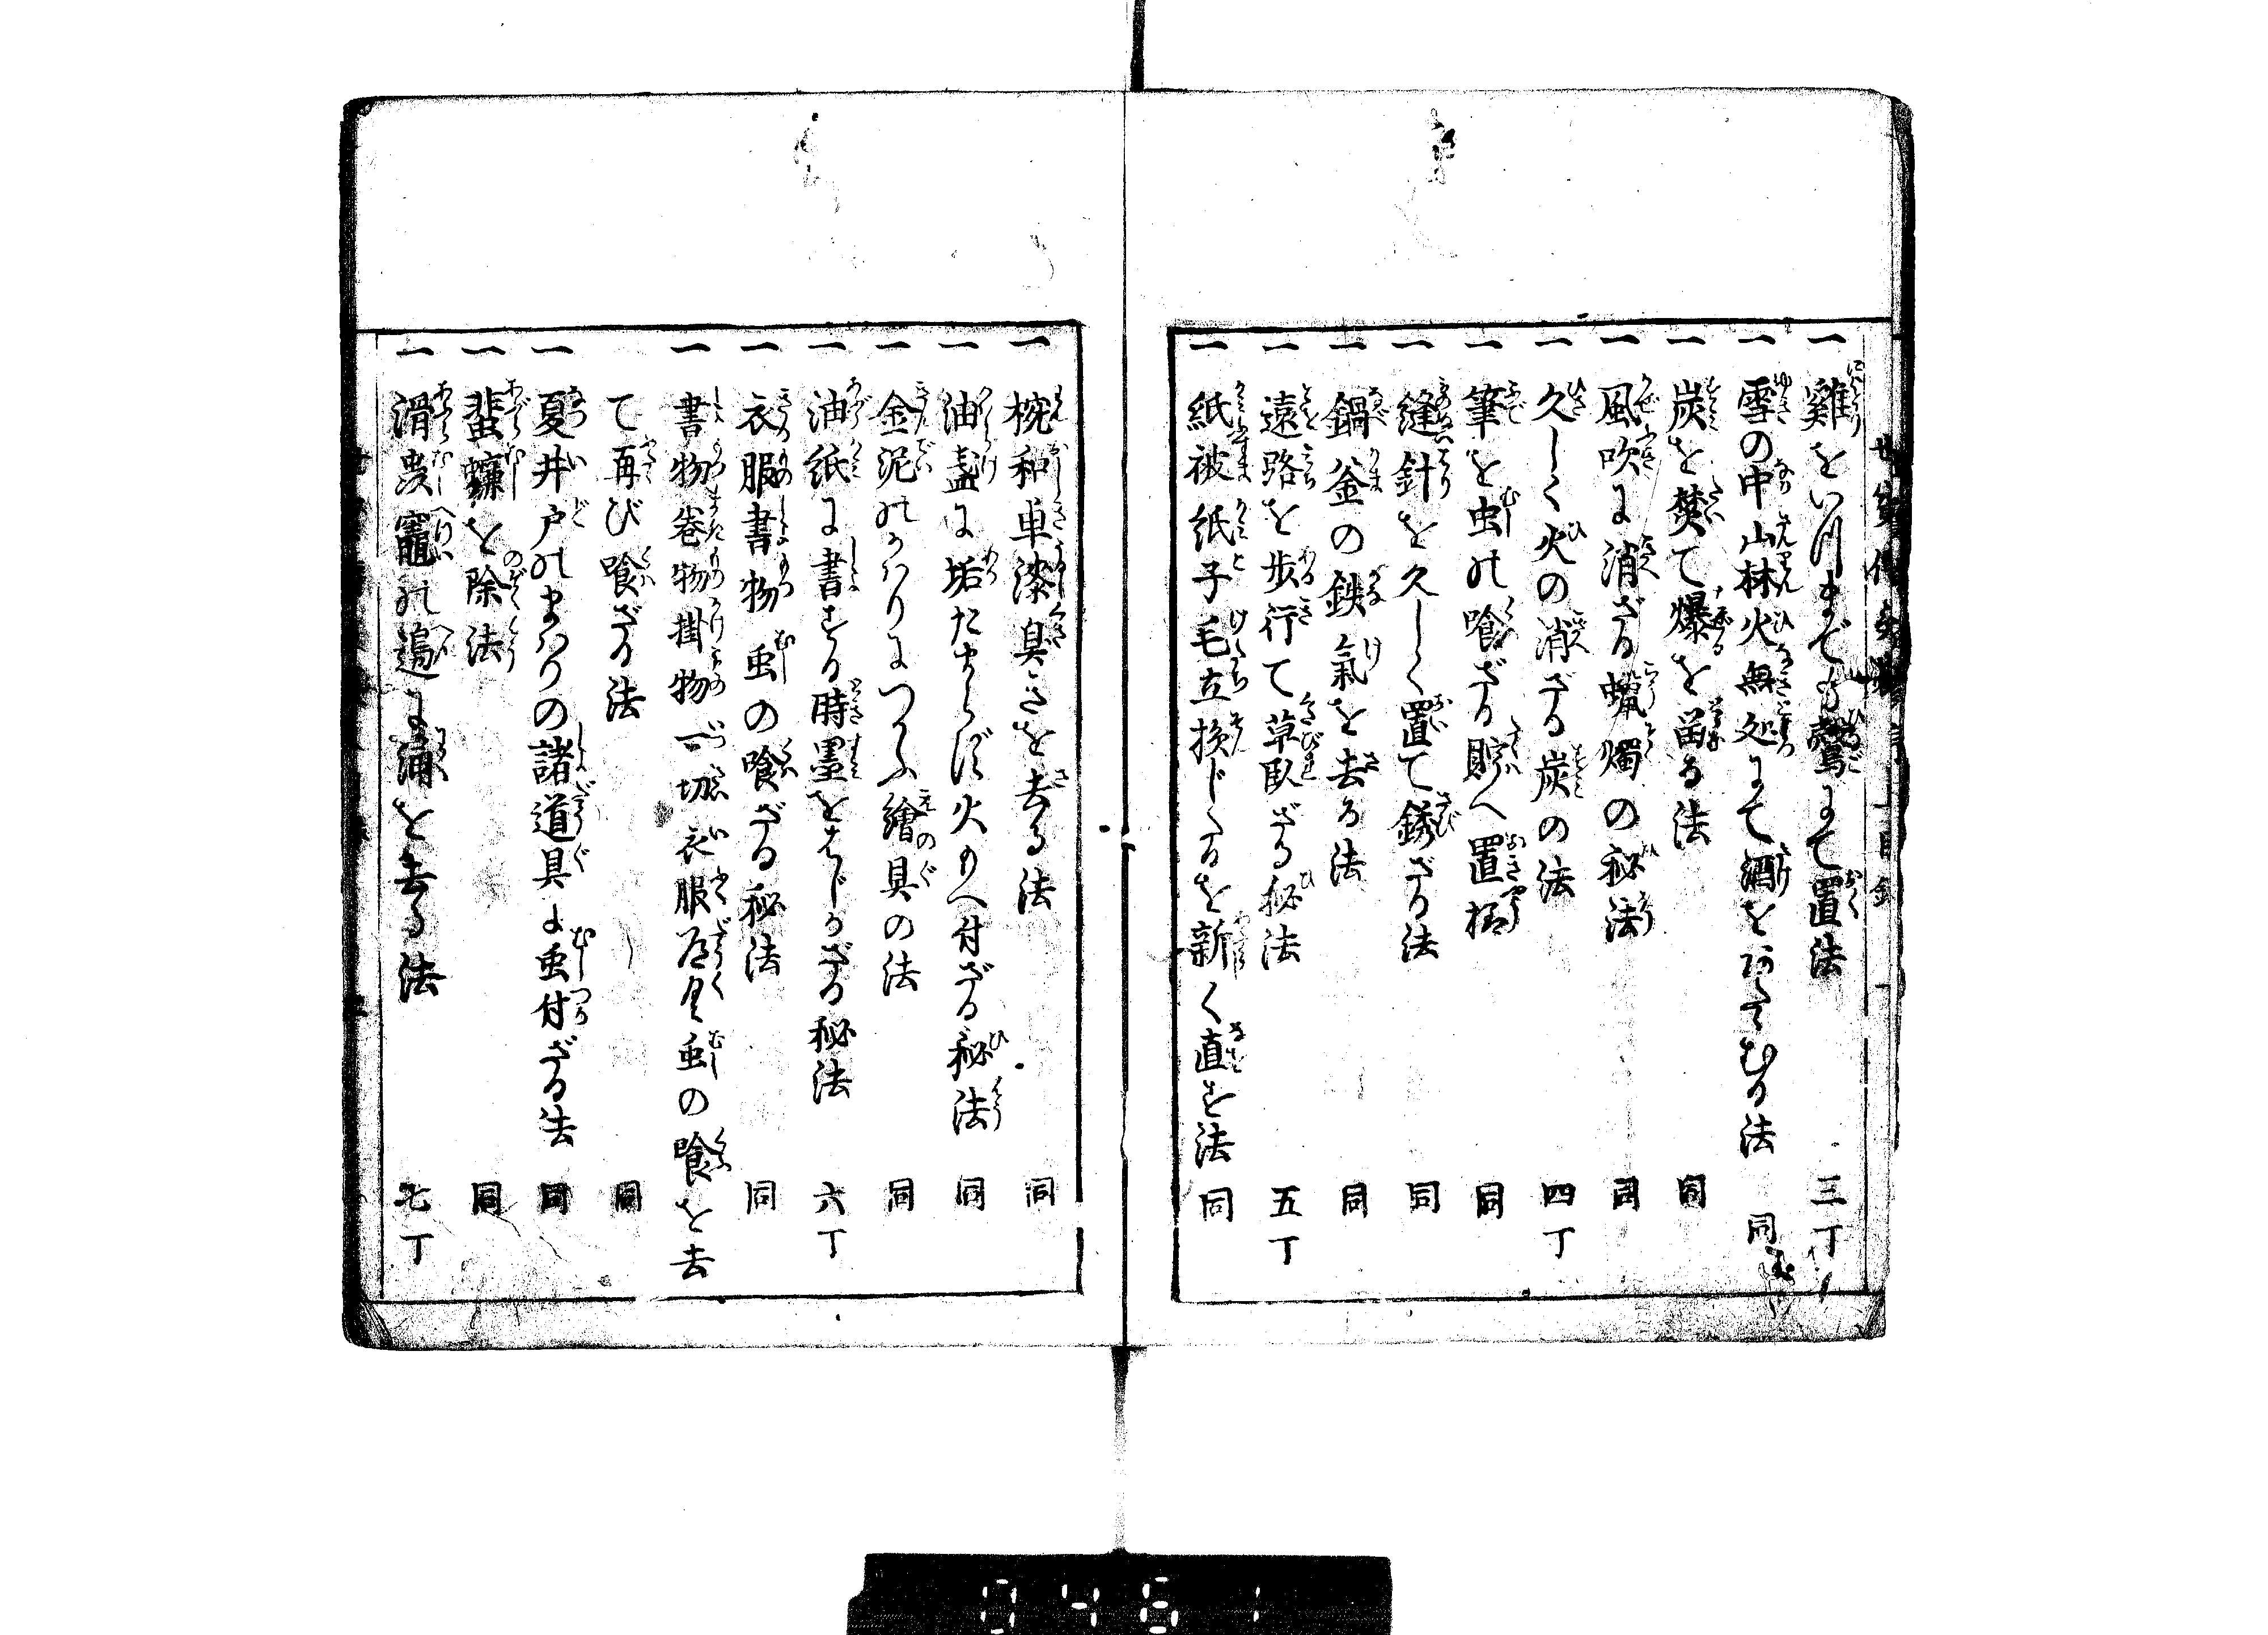 一 雞をいつまでも雛にて置法 三丁
一 雪の中山林火無処にて酒をあたゝむる法 同
一 炭を焚て爆を留る法 同
一 風吹に消ざる蝋燭の秘法 同
一 久しく火の消ざる炭の法 四丁
一 筆を虫の喰ざる貯へ置様 同
一 縫針を久しく置て銹ざる法 同
一 鍋釜の鉄氣を去る法 同
一 遠路を歩行て草臥ざる秘法 五丁
一 紙被紙子毛立損じたるを新しく直す法 同
一 椀和卓漆臭きを去る法 同
一 油盞に垢たまらず火りへ付ざる秘法 同
一 金泥のかはりにつかふ繪具の法 同
一 油紙に書する時墨をはじかざる秘法 六丁
一 衣服書物虫の喰ざる秘法 同
一 書物巻物掛物一切衣服道具虫の喰を去
て再び喰ざる法 同
一 夏井戸のまはりの諸道具に虫付ざる法 同
一 蜚蠊を除法 同
一 滑虫竈の邉に涌を去る法 七丁
0461